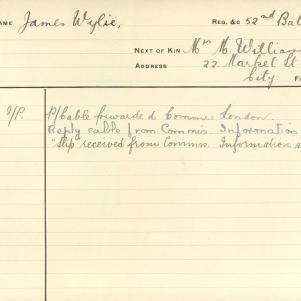 NAME James Wylie, REG. &C 52nd Bat
NEXT OF KIN Mrs M. William
ADDRESS 22 Market St
City.
P/Cable forwarded Commus London.
Reply cable from Commus. Information
"Slip received from Commus. Information